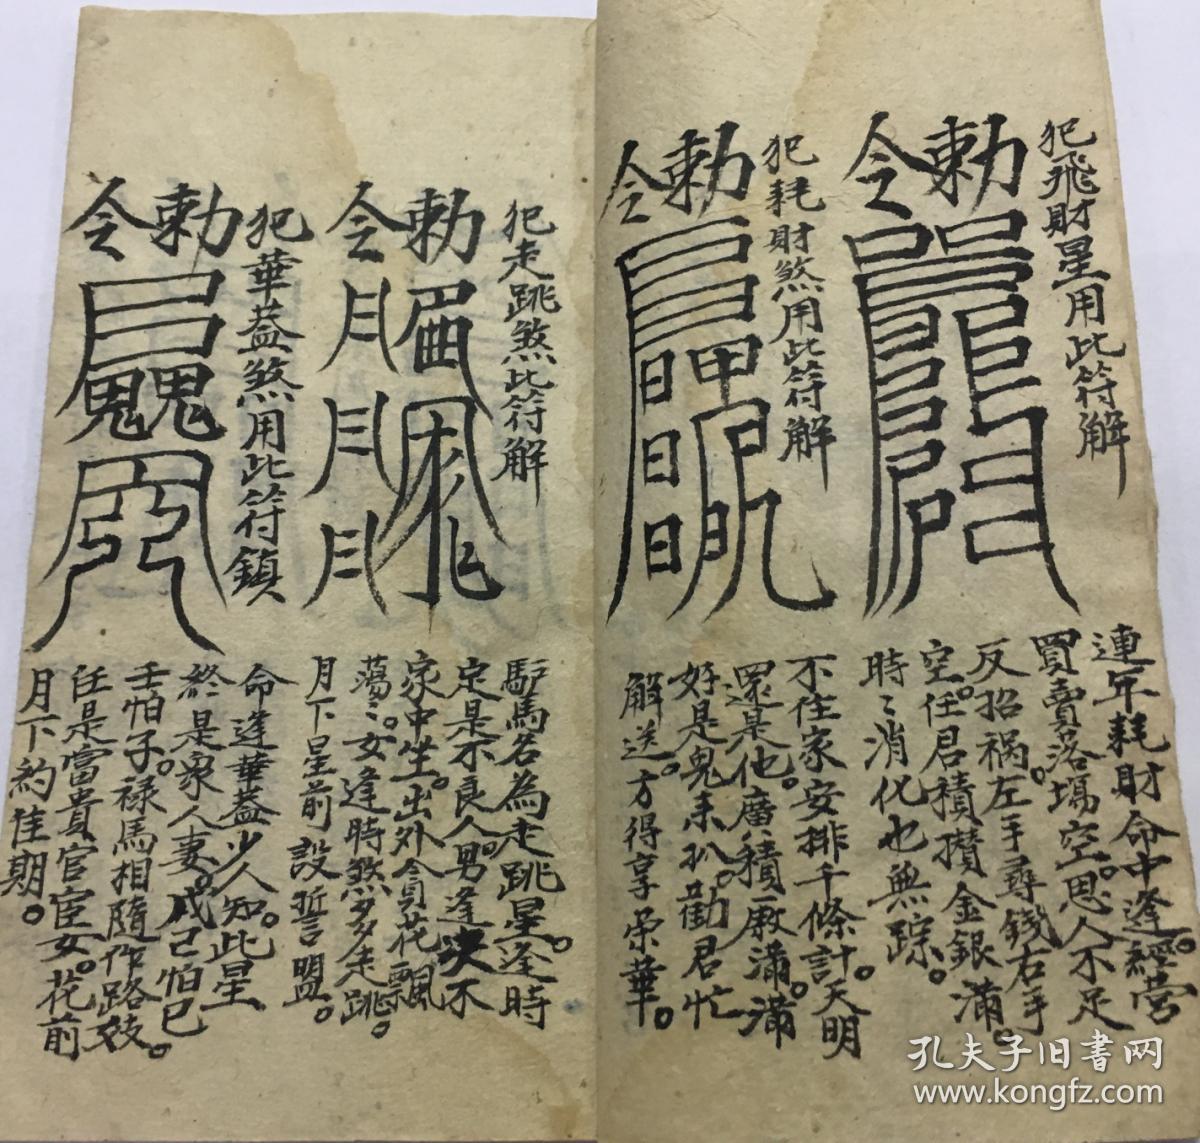 犯飛財星用此符解
勅令
連年耗財命中逢。經營
買賣落塲空。思人不足
反招禍。左手尋錢右手
空。任君積攢金銀滿。
時〻消化也無踪。
犯耗財煞用此符解
勅令
不住家安排千條計。天明
還是他。廣積厫滿滿
好是鬼来扒。勸君忙
解送。方得享荣華。
犯走跳煞此符解
勅令
馿馬名為走跳星。逢時
定是不良人。男逢决不
家中坐。出外貪花飄
蕩〻。女逢時煞多走跳。
月下星前設誓盟。
犯華蓋煞用此符鎮
勅令
命逢華蓋少人知。此星
終是衆人妻。戊己怕巳
壬怕子。禄馬相隨作路妓。
任是富貴官宦女。花前
月下約佳期。
孔夫子旧書网
www.kongfz.com